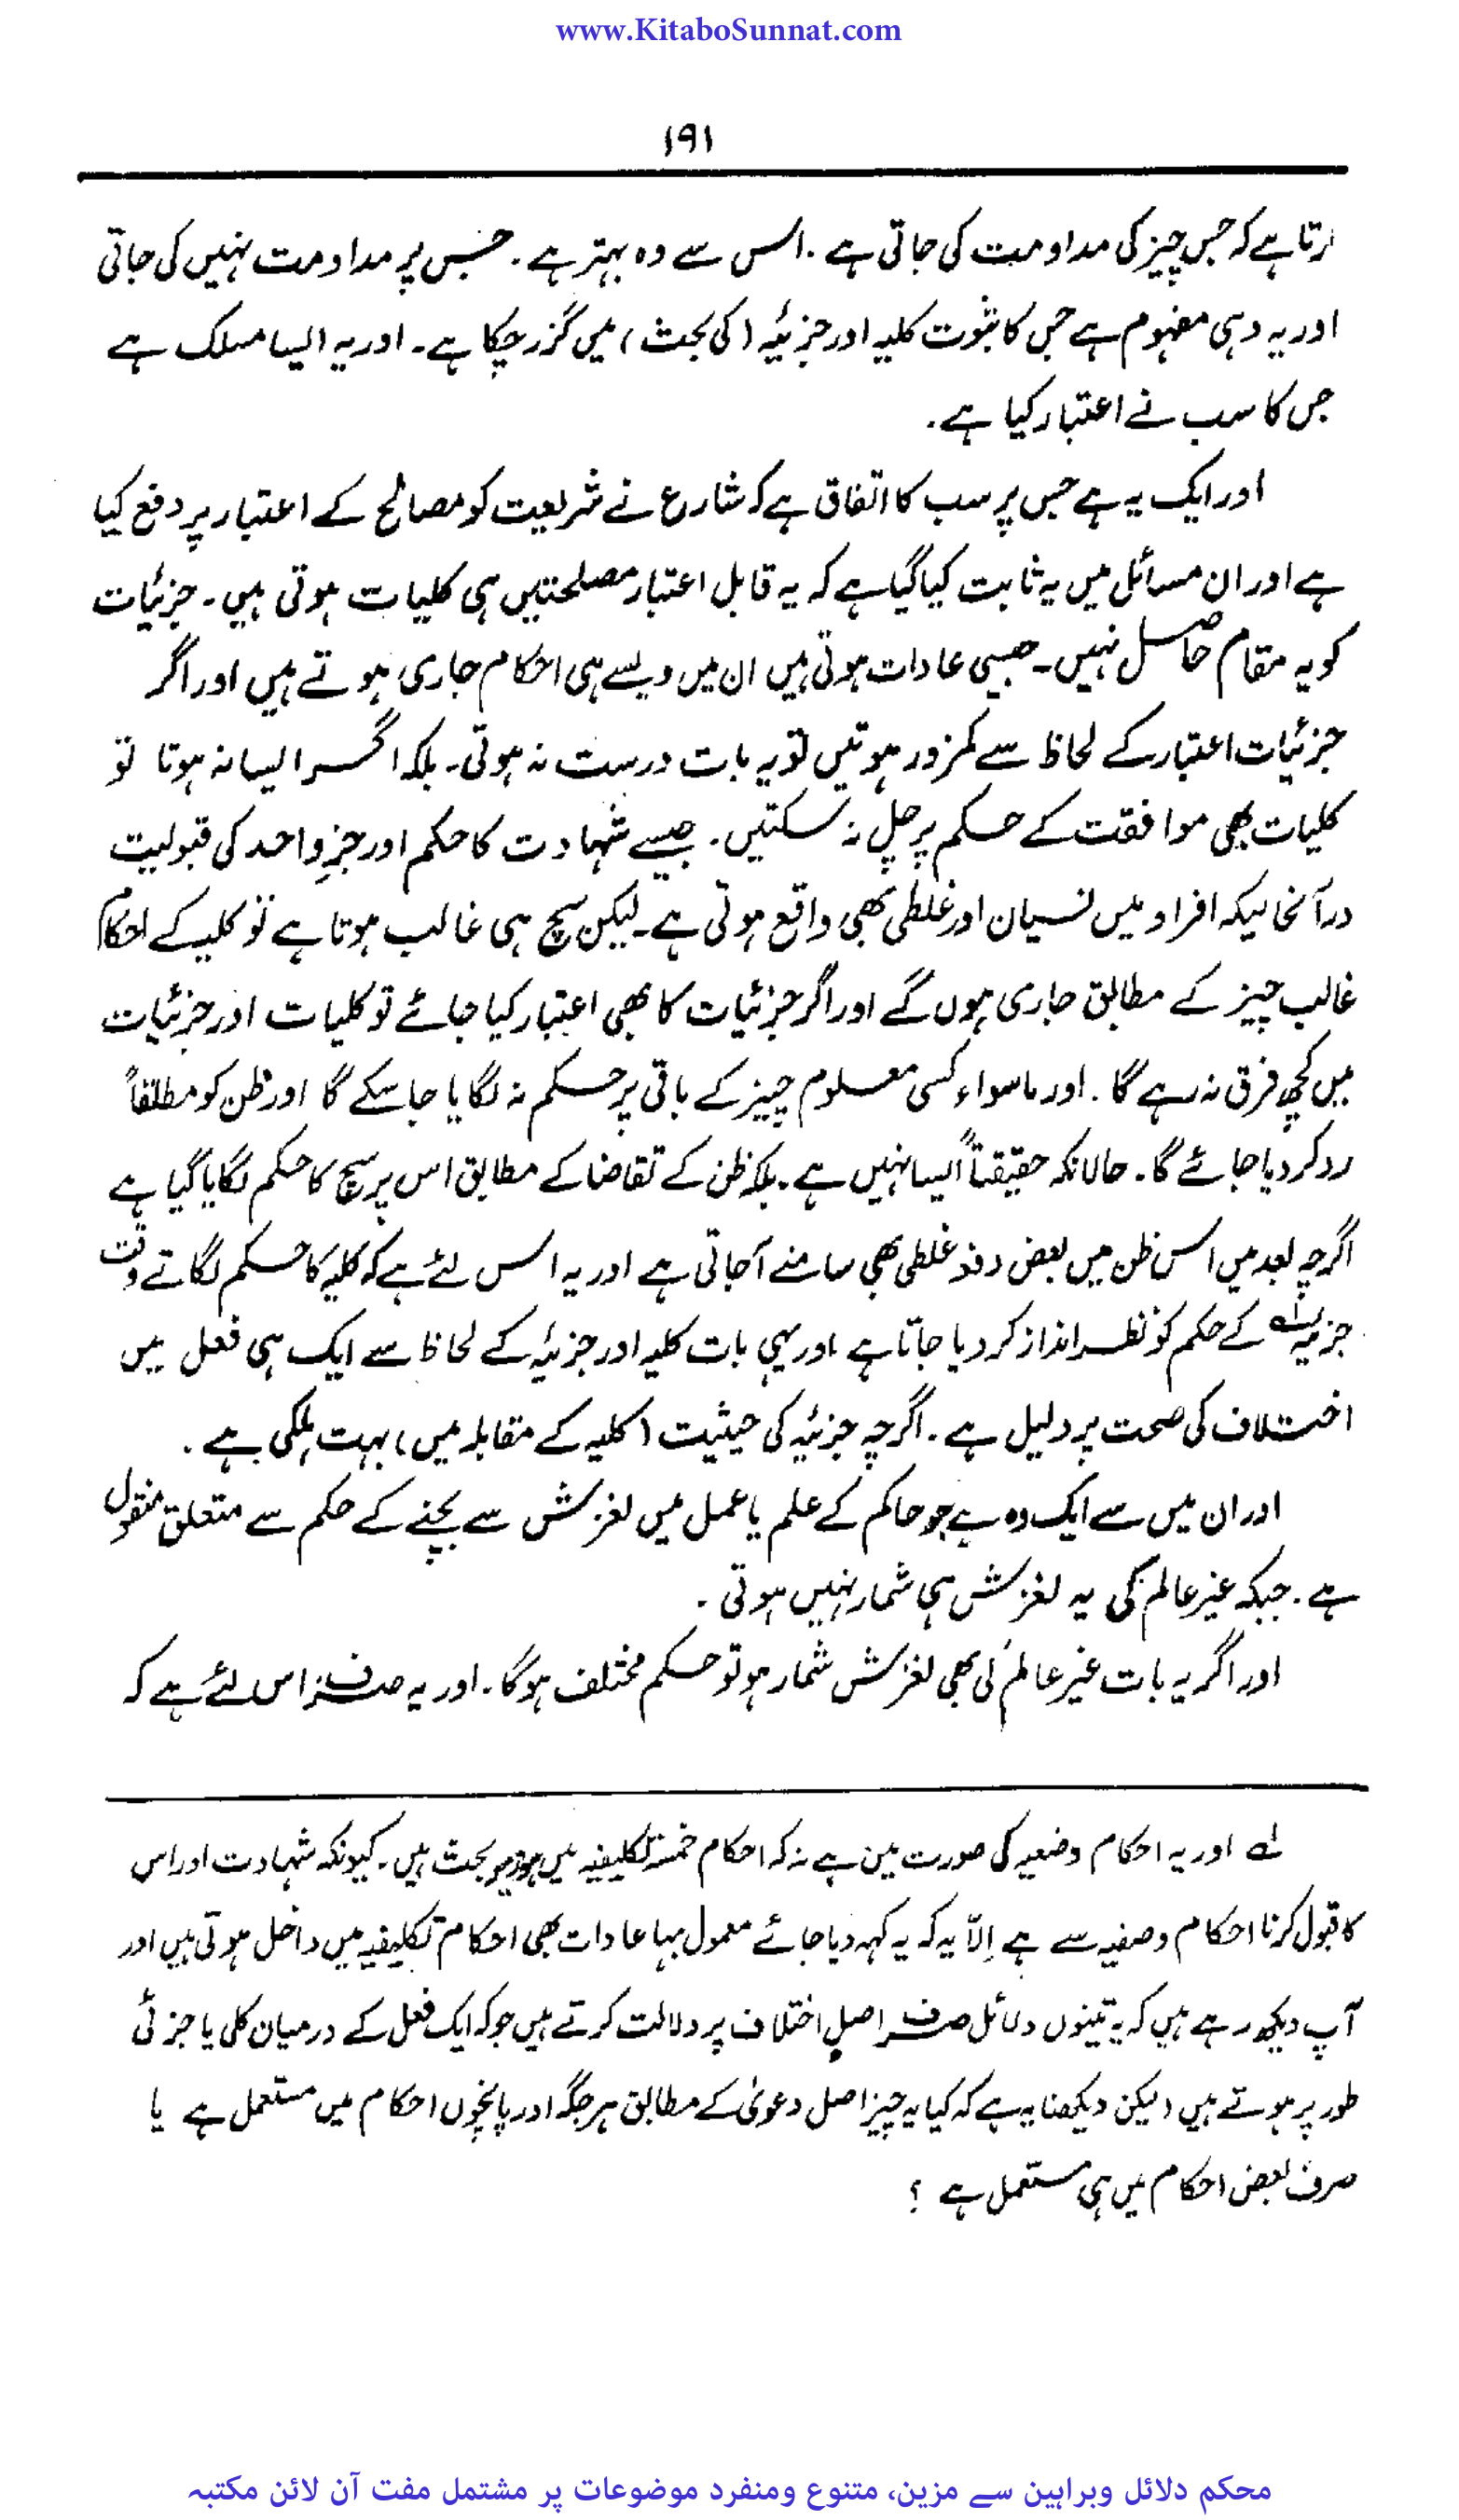 www.KitaboSunnat.com
۱۹۱
رتا ہے کہ جس چیز کی مداومت کی جاتی ہے ۔ اس سے وہ بہتر ہے ۔ جس پر مداومت نہیں کی جاتی
اور یہ وہی مفہوم ہے جس کا ثبوت کلیہ اور جزئیہ (کی بحث) میں گزر چکا ہے۔ اور یہ ایسا مسلک ہے
جس کا سب نے اعتبار کیا ہے ۔
اور ایک یہ ہے جس پر سب کا اتفاق ہے کہ شارع نے شریعت کو مصالح کے اعتبار پر دفع کیا
ہے اور ان مسائل میں یہ ثابت کیا گیا ہے کہ یہ قابل اعتبار مصلحتیں ہی کلیات ہوتی ہیں ۔ جزئیات
کو یہ مقام حاصل نہیں ۔ جیسی عادات ہوتی ہیں ان میں ویسے ہی احکام جاری ہوتے ہیں اور اگر
جزئیات اعتبار کے لحاظ سے کمزور ہوتیں تو یہ بات درست نہ ہوتی ۔ بلکہ اگر ایسا نہ ہوتا تو
کلیات بھی موافقت کے حکم پر چل نہ سکتیں ۔ جیسے شہادت کا حکم اور جزِ واحد کی قبولیت
درآنحالیکہ افراد میں نسیان اور غلطی بھی واقع ہوتی ہے ۔ لیکن سچ ہی غالب ہوتا ہے تو کلیہ کے احکام
غالب چیز کے مطابق جاری ہوں گے اور اگر جزئیات کا بھی اعتبار کیا جائے تو کلیات اور جزئیات
میں کچھ فرق نہ رہے گا ۔ اور ماسواء کسی معلوم چیز کے باقی پر حکم نہ لگایا جا سکے گا اور ظن کو مطلقاً
رد کر دیا جائے گا ۔ حالانکہ حقیقتاً ایسا نہیں ہے ۔ بلکہ ظن کے تقاضا کے مطابق اس پر سچ کا حکم لگایا گیا ہے
اگرچہ بعد میں اس ظن میں بعض دفعہ غلطی بھی سامنے آجاتی ہے اور یہ اس لئے ہے کہ کلیہ کا حکم لگاتے وقت
جزئیہ لہ کے حکم کو نظر انداز کر دیا جاتا ہے اور یہی بات کلیہ اور جزئیہ کے لحاظ سے ایک ہی فعل میں
اختلاف کی صحت پر دلیل ہے ۔ اگرچہ جزئیہ کی حیثیت (کلیہ کے مقابلہ میں) بہت ہلکی ہے ۔
اور ان میں سے ایک وہ ہے جو حاکم کے علم یا عمل میں لغزش سے بچنے کے حکم سے متعلق منقول
ہے ۔ جبکہ غیر عالم کی یہ لغزش ہی شمار نہیں ہوتی ۔
اور اگر یہ بات غیر عالم کی بھی لغزش شمار ہو تو حکم مختلف ہوگا ۔ اور یہ صرف اس لئے ہے کہ
لہ اور یہ احکام وضعیہ کی صورت میں ہے نہ کہ احکام خمسہ تکلیفیہ میں جو زیر بحث ہیں ۔ کیونکہ شہادت اور اس
کا قبول کرنا احکام وصفیہ سے ہے اِلّا یہ کہ یہ کہہ دیا جائے معمول بہا عادات بھی احکام تکلیفیہ میں داخل ہوتی ہیں اور
آپ دیکھ رہے ہیں کہ یہ تینوں دلائل صرف اصلِ اختلاف پر دلالت کرتے ہیں جو کہ ایک فعل کے درمیان کلی یا جزئی
طور پر ہوتے ہیں ، لیکن دیکھنا یہ ہے کہ کیا یہ چیز اصل دعویٰ کے مطابق ہر جگہ اور پانچوں احکام میں مستعمل ہے یا
صرف بعض احکام میں ہی مستعمل ہے ؟
محکم دلائل وبراہین سے مزین، متنوع ومنفرد موضوعات پر مشتمل مفت آن لائن مکتبہ